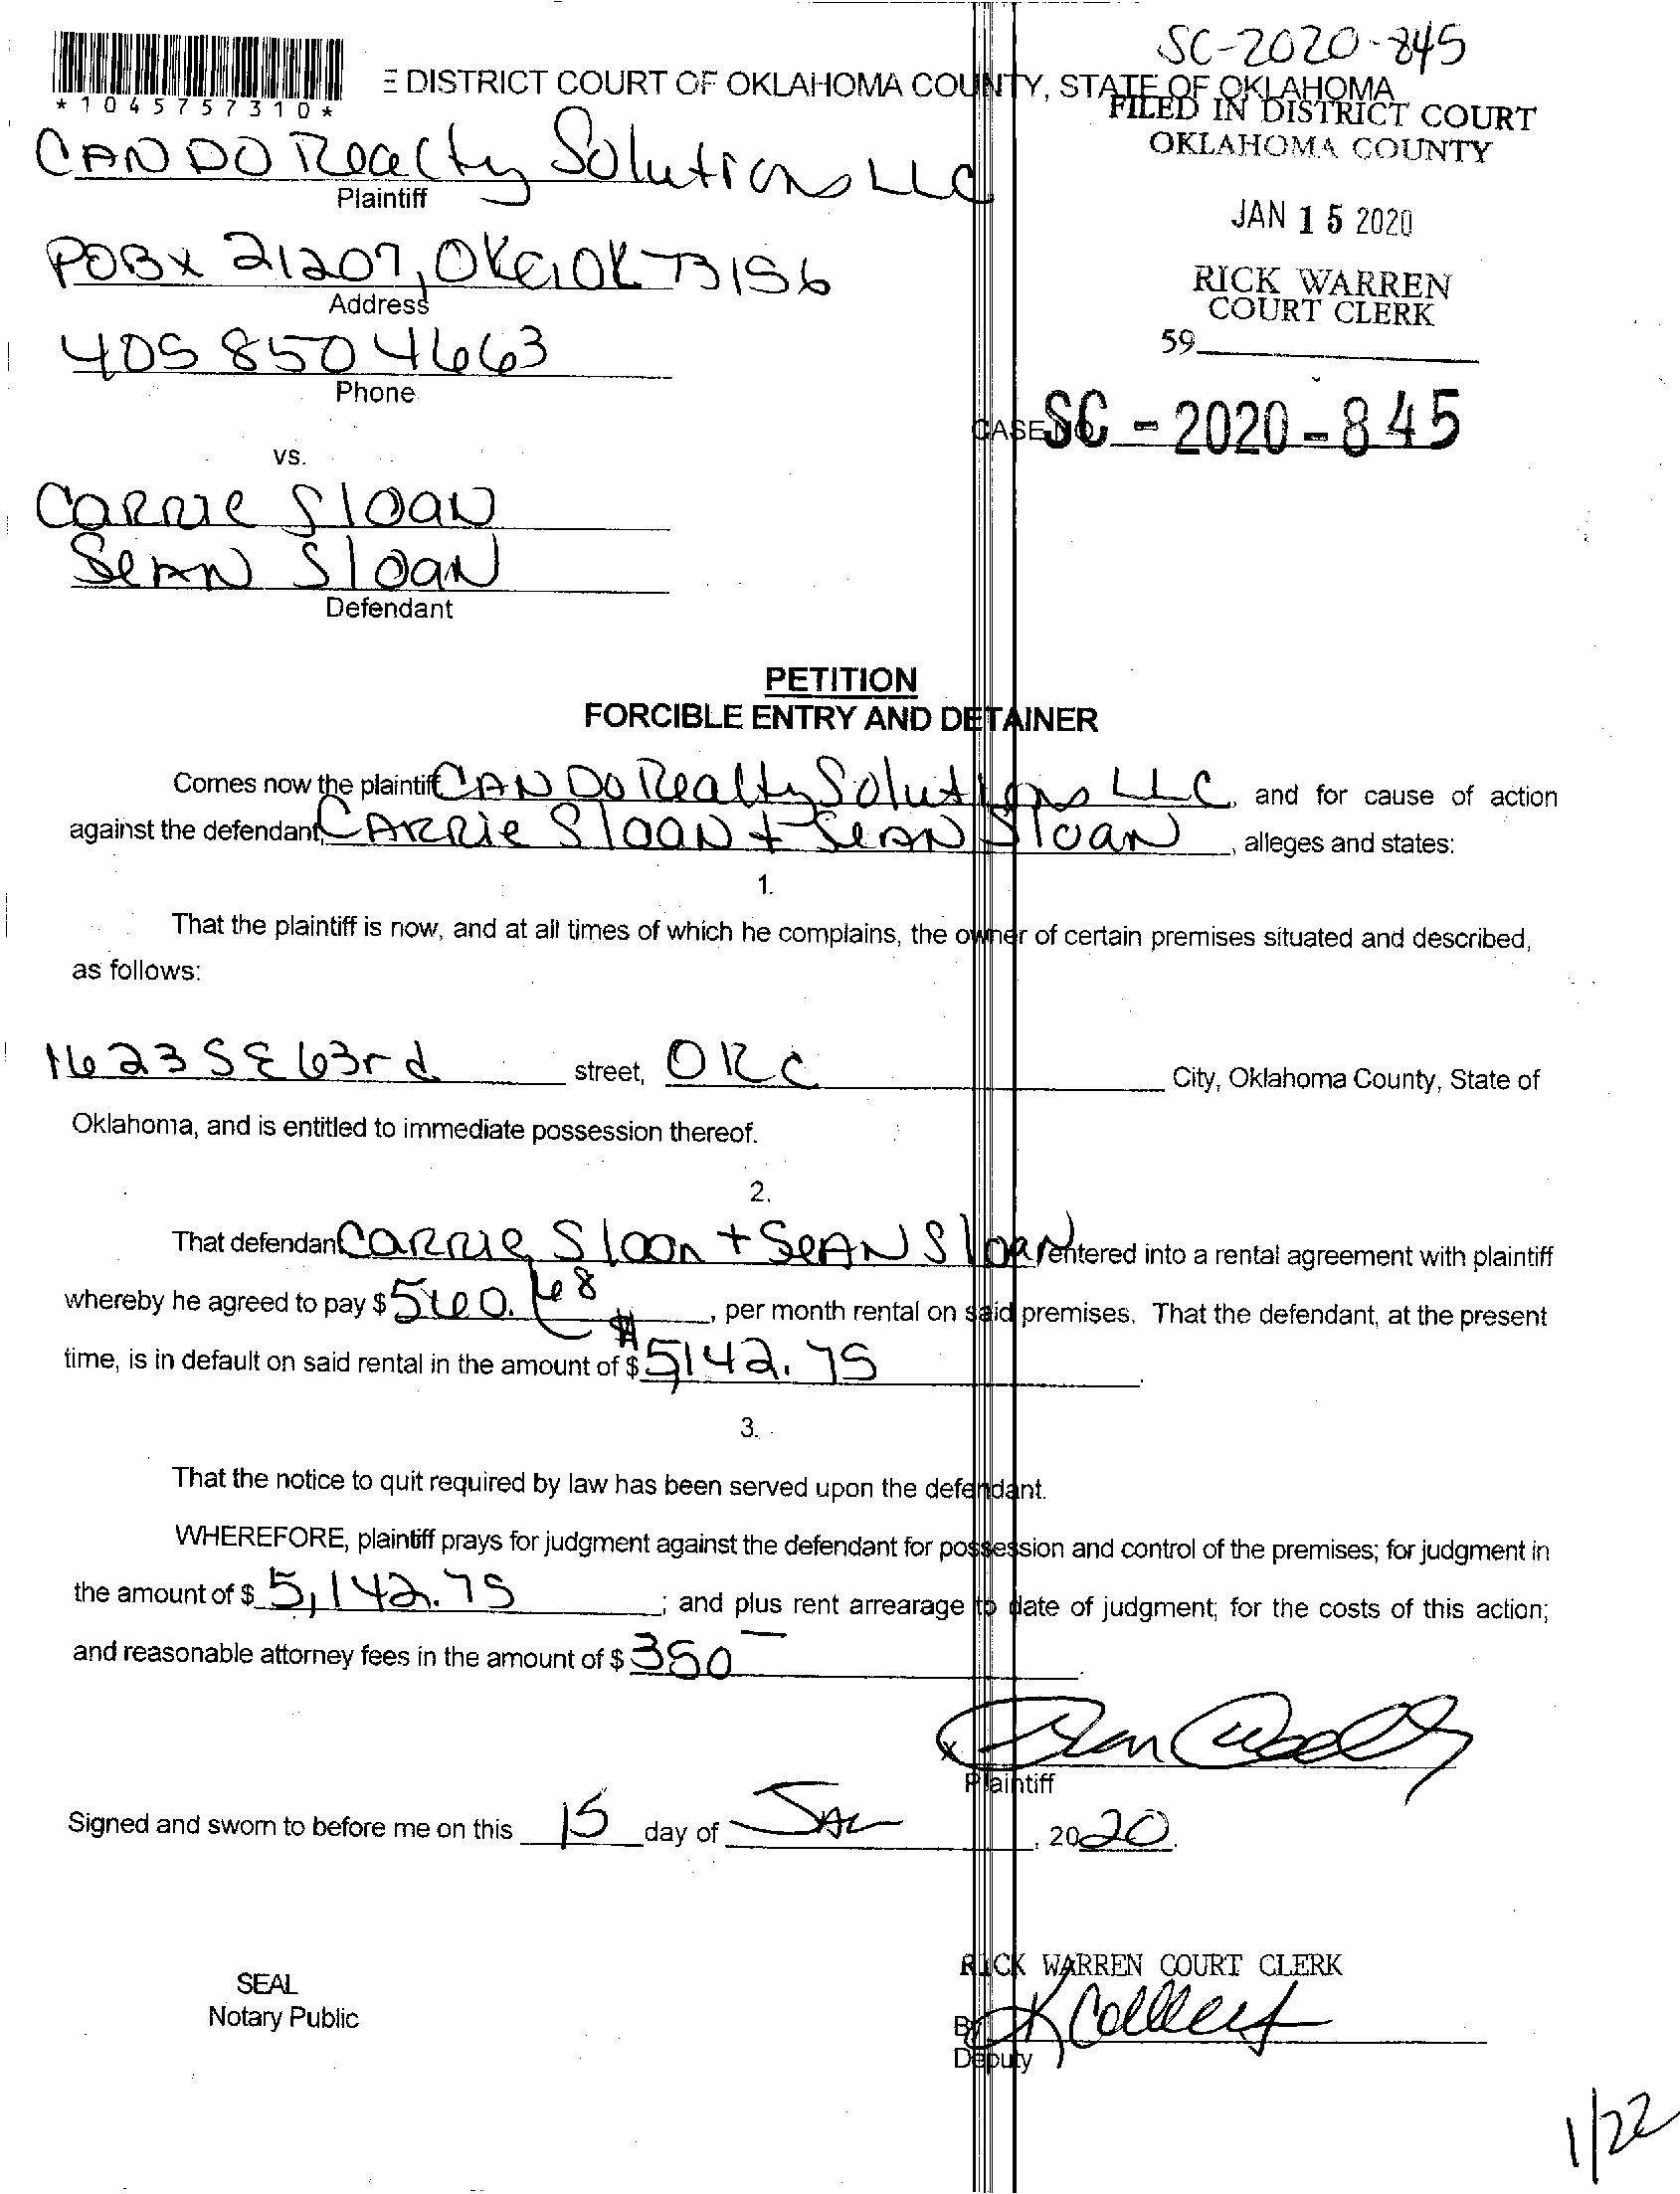 SC-2020-845
*1045757310*
E DISTRICT COURT OF OKLAHOMA COUNTY, STATE OF OKLAHOMA
FILED IN DISTRICT COURT
OKLAHOMA COUNTY
CAN DO Realty Solutions LLC
Plaintiff
JAN 15 2020
POBx 21207, OKC, OK 73156
Address
RICK WARREN
COURT CLERK
405 850 4663
Phone
59
CASE NO. SC-2020-845
vs.
Carrie Sloan
Sean Sloan
Defendant
PETITION
FORCIBLE ENTRY AND DETAINER
Comes now the plaintiff CAN DO Realty Solutions LLC, and for cause of action
against the defendant, Carrie Sloan + Sean Sloan, alleges and states:
1.
That the plaintiff is now, and at all times of which he complains, the owner of certain premises situated and described,
as follows:
1623 SE 63rd street, OKC City, Oklahoma County, State of
Oklahoma, and is entitled to immediate possession thereof.
2.
That defendant Carrie Sloan + Sean Sloan, entered into a rental agreement with plaintiff
whereby he agreed to pay $ 560.68, per month rental on said premises. That the defendant, at the present
time, is in default on said rental in the amount of $ $5142.75.
3.
That the notice to quit required by law has been served upon the defendant.
WHEREFORE, plaintiff prays for judgment against the defendant for possession and control of the premises; for judgment in
the amount of $ 5,142.75; and plus rent arrearage to date of judgment; for the costs of this action;
and reasonable attorney fees in the amount of $ 350.
x
Plaintiff
Signed and sworn to before me on this 15 day of Jan, 2020.
RICK WARREN COURT CLERK
SEAL
Notary Public
By
Deputy
1/22